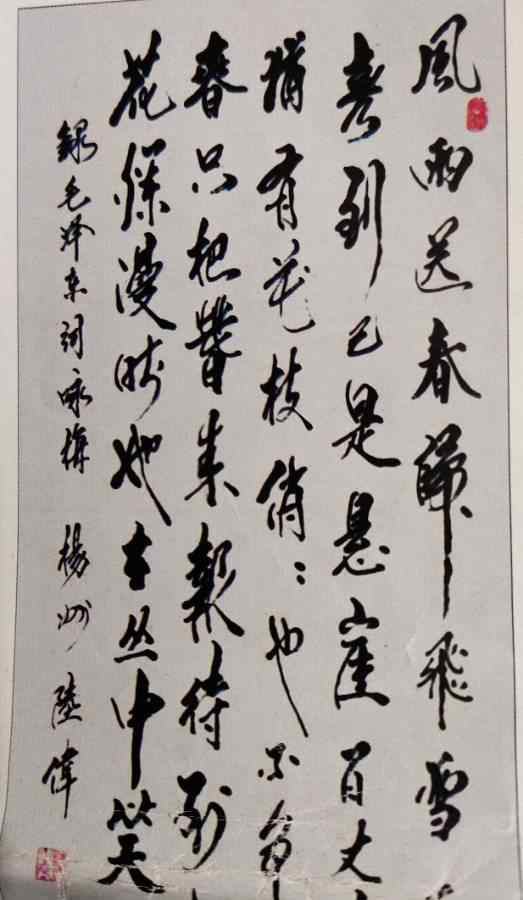 風雨送春歸飛雪
春到已是懸崖百丈
猶有花枝俏俏〻也不爭
春只把春來報待到
花爛漫時她在丛中笑
錄毛泽东词咏梅 楊州 陸偉